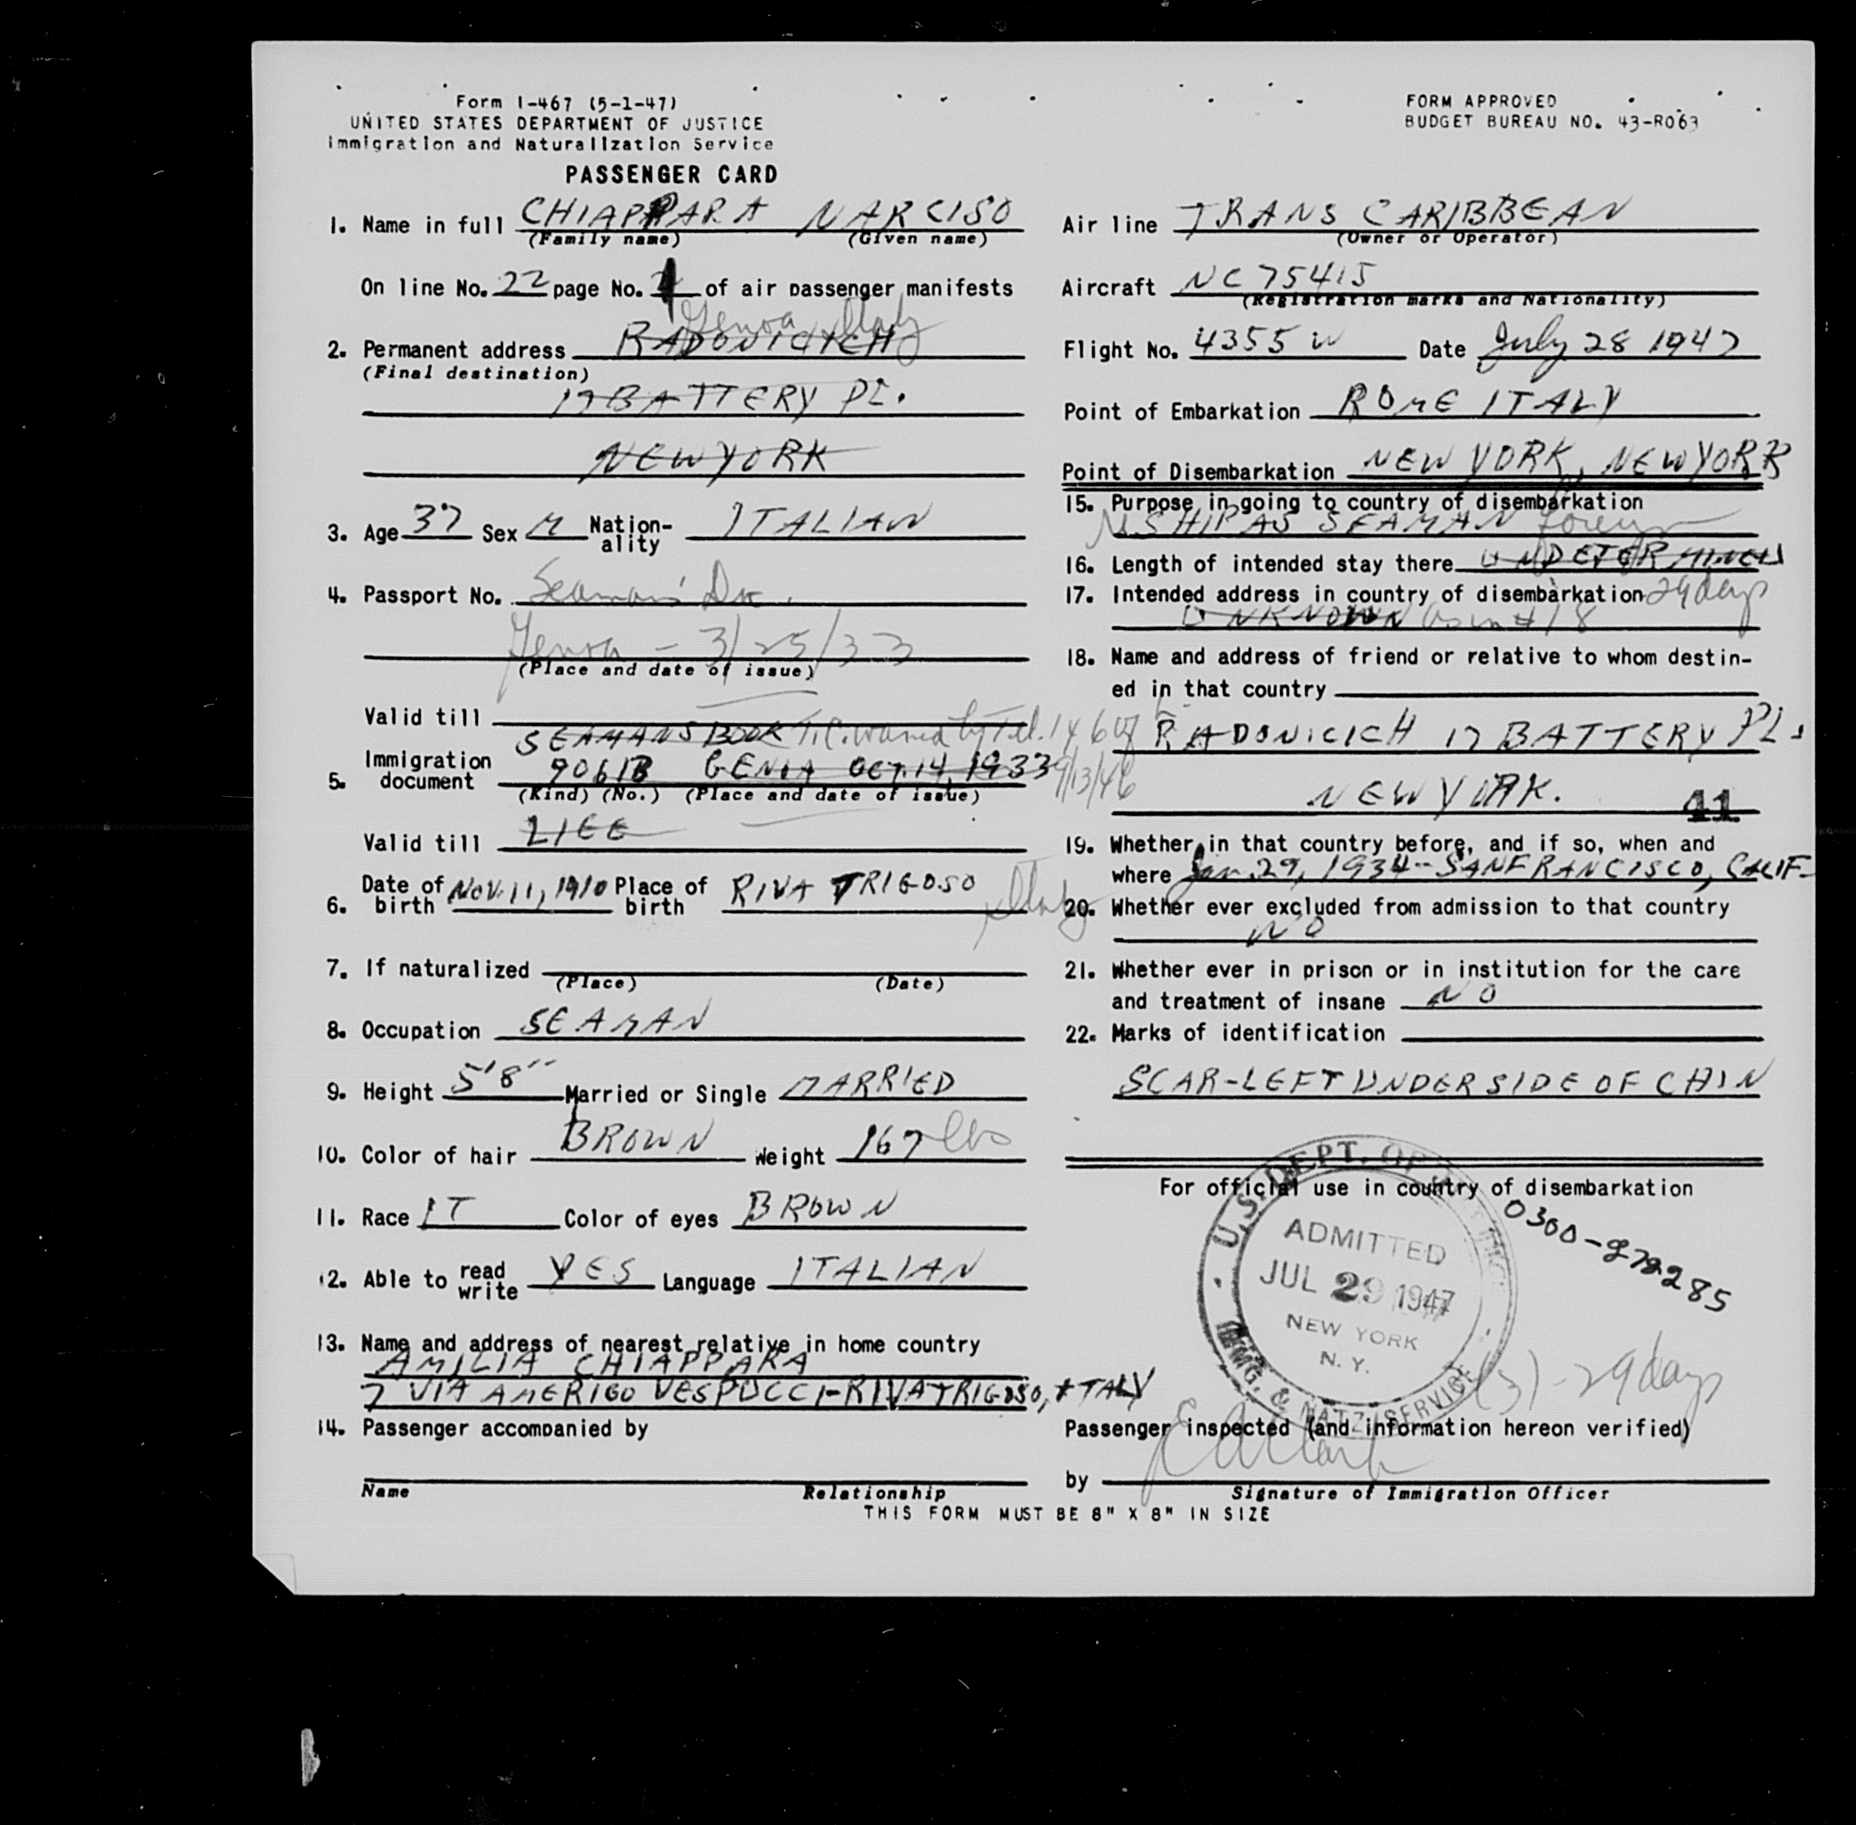 Form I-467 (5-1-47)
UNITED STATES DEPARTMENT OF JUSTICE
Immigration and Naturalization Service
PASSENGER CARD
FORM APPROVED
BUDGET BUREAU NO. 43-R063
1. Name in full CHIAPPARA NARCISO
(Family name) (Given name)
On line No. 22 page No. of air passenger manifests
Genoa Italy
2. Permanent address RADONICICH
(Final destination)
17 BATTERY PL.
NEW YORK
3. Age 37 Sex M Nation-ality ITALIAN
4. Passport No. Seaman's
Genoa - 3/25/33
(Place and date of issue)
Valid till
SEAMANS BOOK T.C. waived by Tel. 146
5. Immigration document 9061B GENOA OCT. 14, 1933 9/13/46
(Kind) (No.) (Place and date of issue)
Valid till LIFE
6. Date of birth NOV. 11, 1910 Place of birth RIVA TRIGOSO Italy
7. If naturalized
(Place) (Date)
8. Occupation SEAMAN
9. Height 5'8" Married or Single MARRIED
10. Color of hair BROWN Weight 167 lbs
11. Race IT Color of eyes BROWN
12. Able to read write YES Language ITALIAN
13. Name and address of nearest relative in home country
AMILIA CHIAPPARA
7 VIA AMERIGO VESPUCCI-RIVA TRIGOSO, ITALY
14. Passenger accompanied by
Name Relationship
Air line TRANS CARIBBEAN
(Owner or Operator)
Aircraft NC 75415
(Registration marks and Nationality)
Flight No. 4355 W Date July 28 1947
Point of Embarkation ROME ITALY
Point of Disembarkation NEW YORK, NEW YORK
15. Purpose in going to country of disembarkation
SHIP AS SEAMAN foreign
16. Length of intended stay there UNDETERMINED
17. Intended address in country of disembarkation 29 days
UNKNOWN as in #18
18. Name and address of friend or relative to whom destin-
ed in that country
RADONICICH 17 BATTERY PL.
NEW YORK. 41
19. Whether in that country before, and if so, when and
where Jan. 29, 1934 -- SAN FRANCISCO, CALIF-
20. Whether ever excluded from admission to that country
NO
21. Whether ever in prison or in institution for the care
and treatment of insane NO
22. Marks of identification
SCAR-LEFT UNDERSIDE OF CHIN
For official use in country of disembarkation
0300-272285
U.S. DEPT. OF JUSTICE
ADMITTED
JUL 29 1947
NEW YORK
N.Y.
IMMG. & NATZ. SERVICE
(3) - 29 days
Passenger inspected (and information hereon verified)
by
Signature of Immigration Officer
THIS FORM MUST BE 8" X 8" IN SIZE